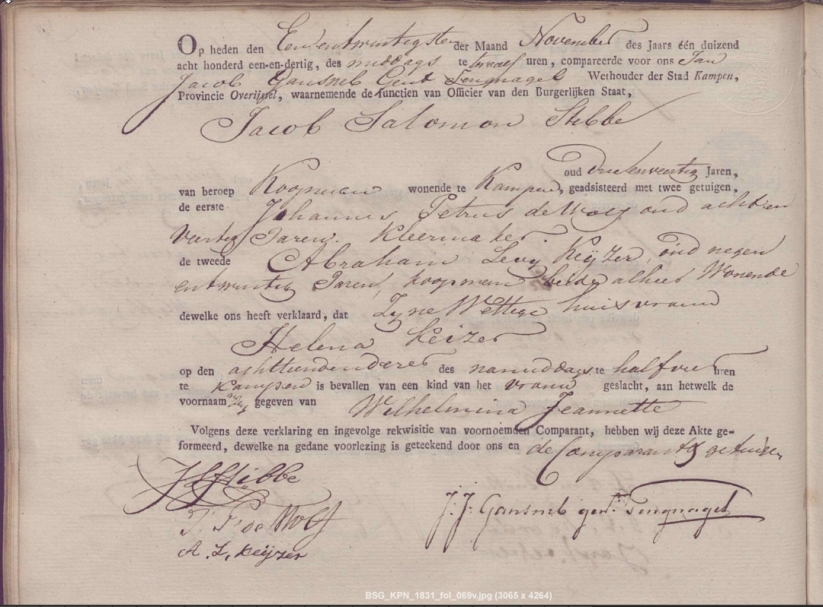 Op heden den Eenentwintigsten der Maand November des Jaars één duizend
acht honderd een-en-dertig, des middags te twaalf uren, compareerde voor ons Jan
Jacob Gansneb Gent Tengnagel Wethouder der Stad Kampen,
Provincie Overijssel, waarnemende de functien van Officier van den Burgerlijken Staat,
Jacob Salomon Stibbe
oud Jaren,
van beroep Koopman wonende te Kampen, geadsisteerd met twee getuigen,
de eerste Johannes Petrus de Wolf oud achten
Veertig Jaren, Kleermaker
de tweede Abraham Levy Keijzer, oud negen
entwintig Jaren, koopman beide alhier Wonende
dewelke ons heeft verklaard, dat Zyne Wettige huisvrouw
Helena Keizer
op den achttiendendezer des namiddags te half vier uren
te Kampen is bevallen van een kind van het vrouw geslacht, aan hetwelk de
voornaam gegeven van Wilhelmina Jeannette
Volgens deze verklaring en ingevolge rekwisitie van voornoemden Comparant, hebben wij deze Akte ge-
formeerd, dewelke na gedane voorlezing is geteekend door ons en de Comparant & getuigen
JSStibbe
J. P. de Wolf
J: J: Gansneb gen: Tengnagel
A. L. Keijzer
BSG_KPN_1831_fol_069v.jpg (3065 x 4264)